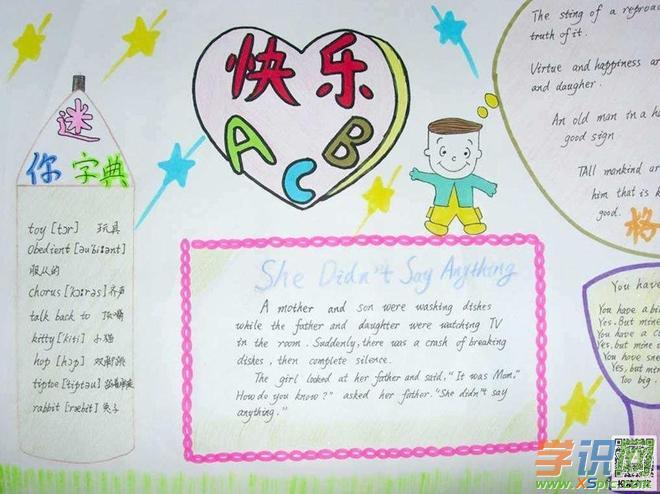 快乐
A C B
迷
你字典
toy [tɔr] 玩具
Obedient [əu'bi:ənt]
服从的
chorus [kɔ:rəs] 齐声
talk back to 顶嘴
kitty [kiti] 小猫
hop [hɔp] 双脚跳
tiptoe [tiptəu]
rabbit [ræbit] 兔子
She Didn't Say Anything
A mother and son were washing dishes
while the father and daughter were watching TV
in the room. Suddenly, there was a crash of breaking
dishes, then complete silence.
The girl looked at her father and said, "It was Mom."
How do you know?" asked her father. "She didn't say
anything."
The sting of a reproac
truth of it.
Virtue and happiness ar
and daugher.
An old man in a h
good sign
TAll mankind ar
him that is k
good.
格
You have
You have a bi
Yes. But mine
You have a
Yes, but mine o
You have sne
Yes, but min
Too big.
学识网
www.XSpic.com